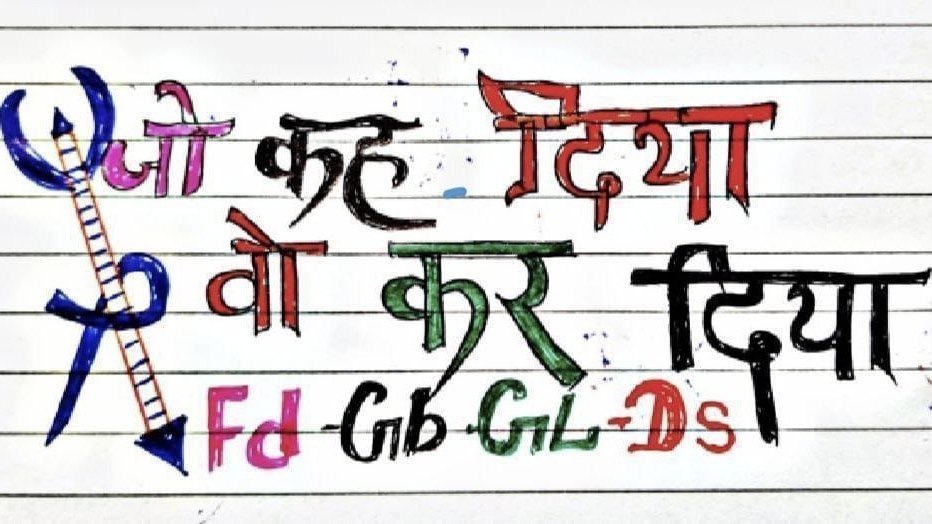 जो कह दिया
वो कर दिया
Fd-Gb-GL-Ds